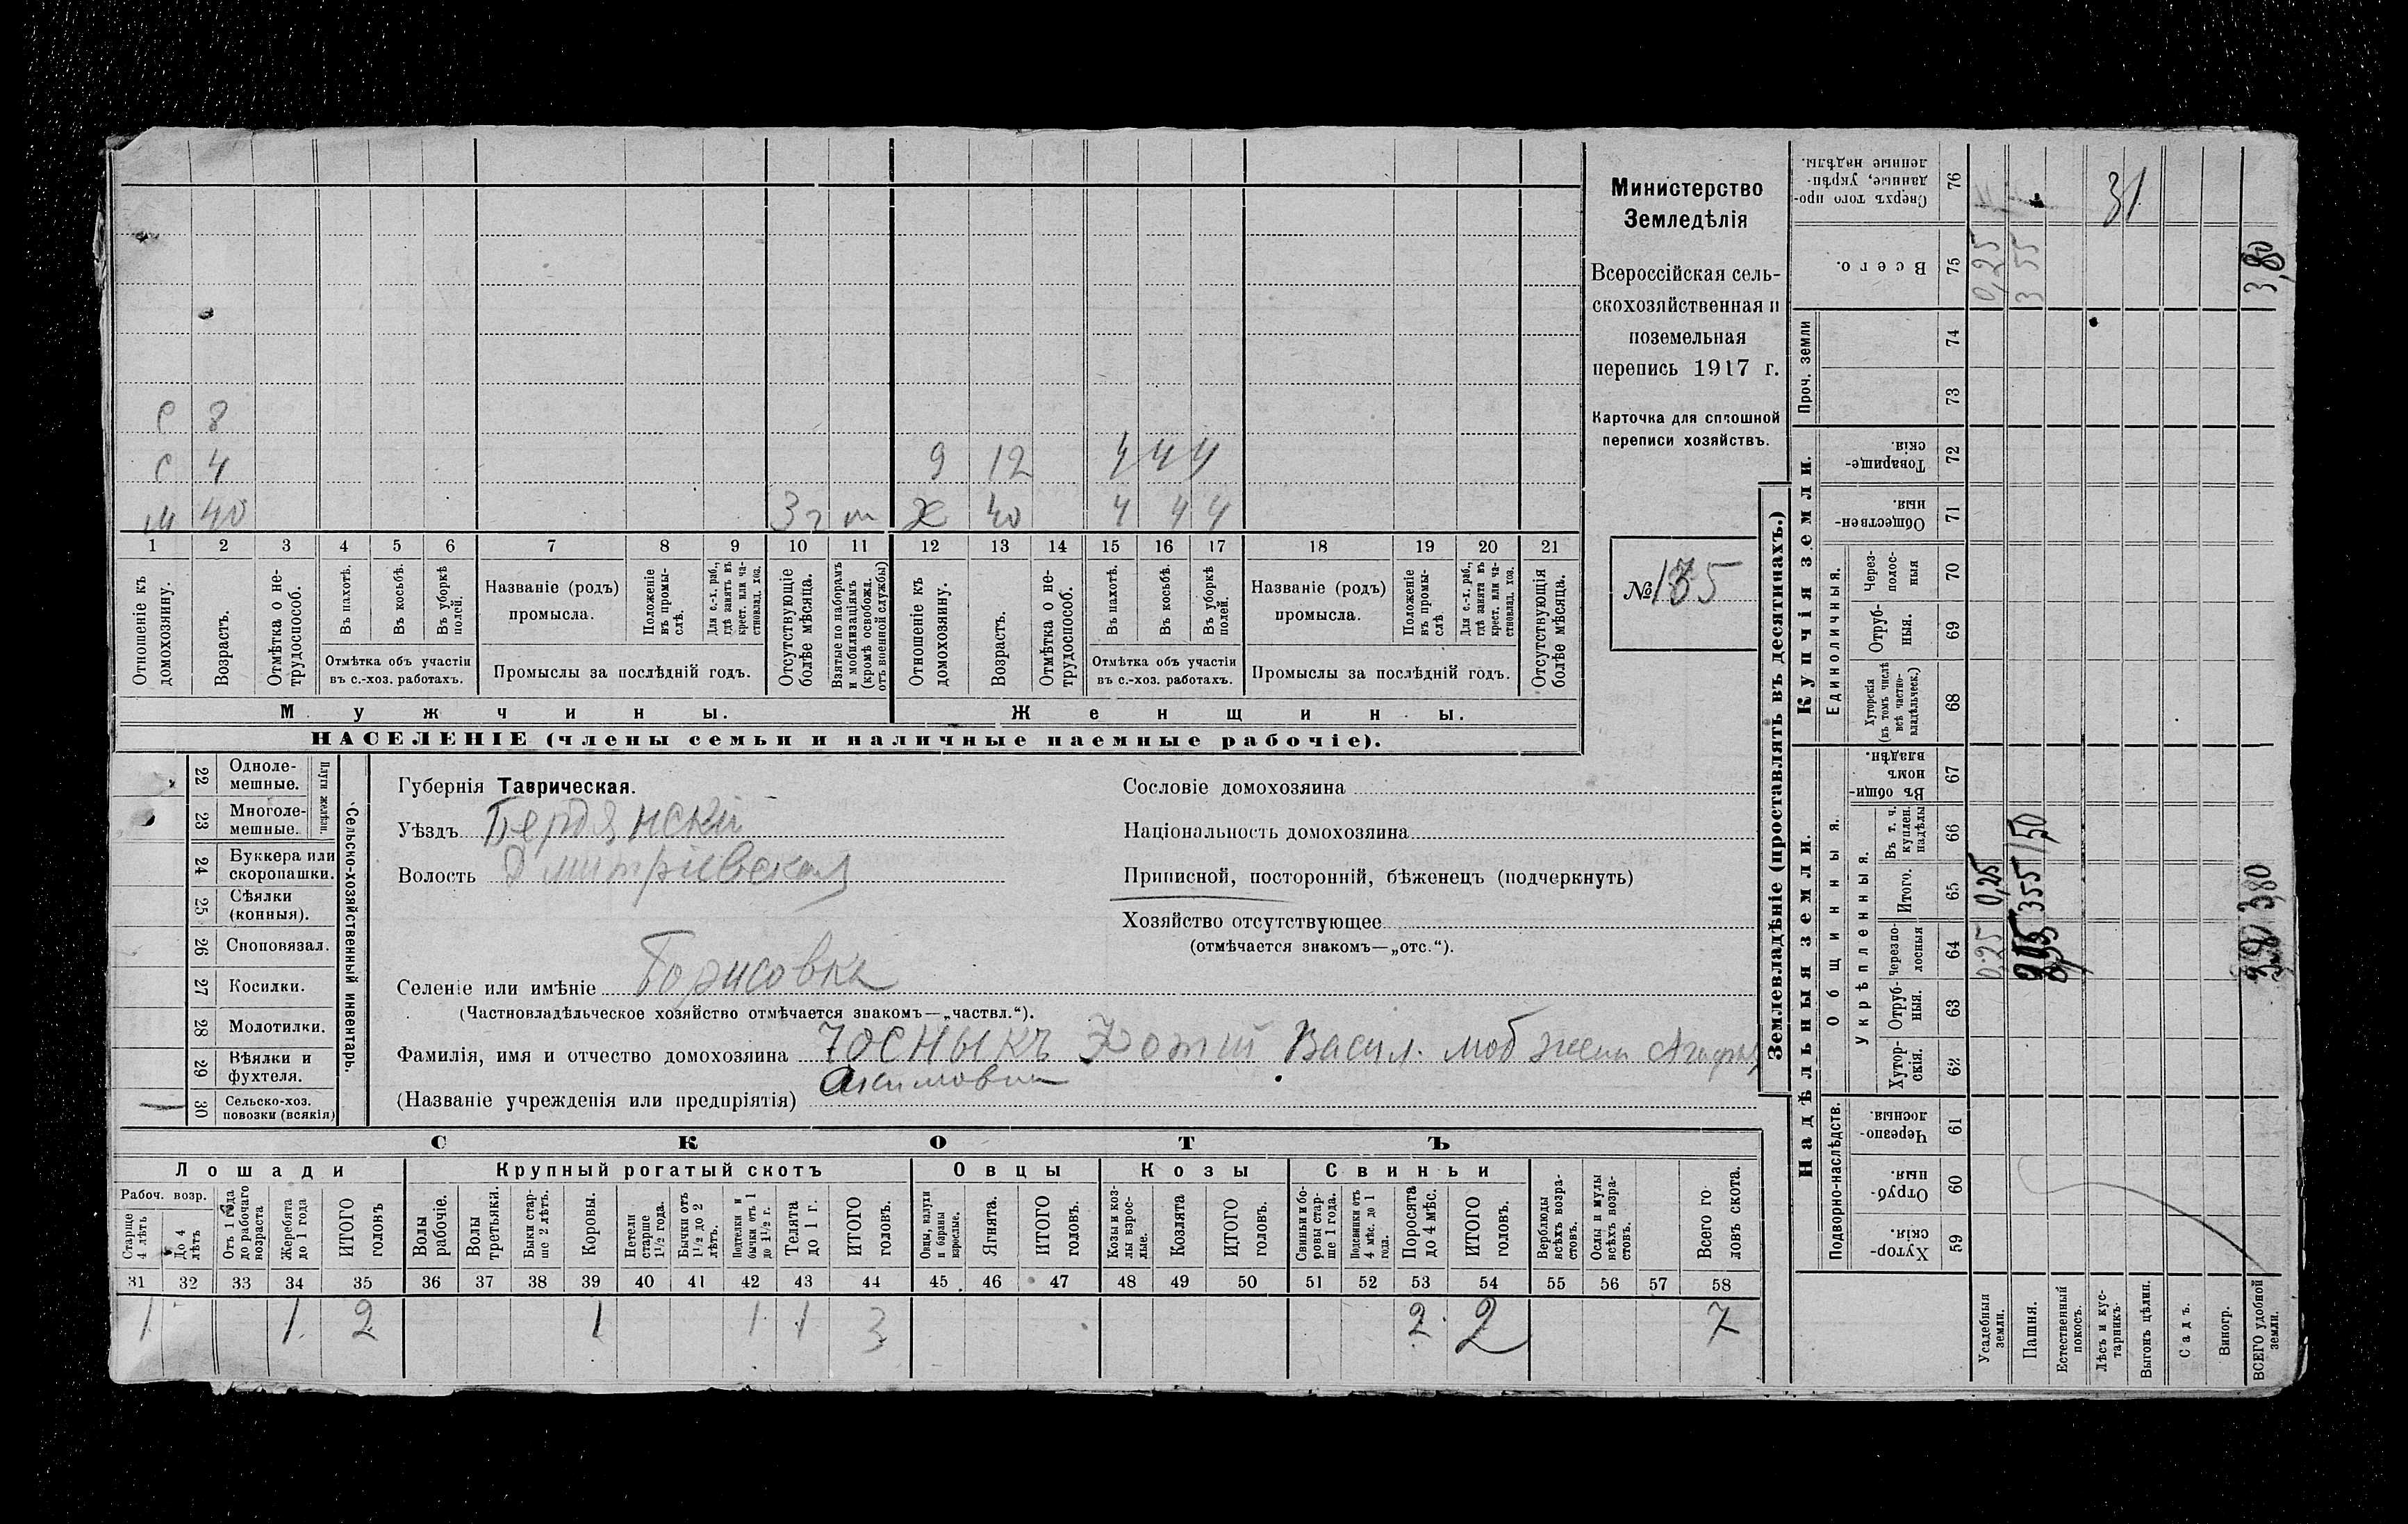 Министерство
Земледѣлія
Всероссійская сель-
скохозяйственная и
поземельная
перепись 1917 г.
Карточка для сплошной
переписи хозяйствъ.
№ 135
с 8
с 4
9 12 4 4 4
м 40 3 г м ж 40 4 4 4
1 2 3 4 5 6 7 8 9 10 11 12 13 14 15 16 17 18 19 20 21
Отношеніе къ домохозяину.
Возрастъ.
Отмѣтка о не-трудоспособ.
Въ пахотѣ.
Въ косьбѣ.
Въ уборкѣ полей.
Отмѣтка объ участіи
въ с.-хоз. работахъ.
Названіе (родъ)
промысла.
Положеніе въ промы-слѣ.
Для с.-х. раб., гдѣ занятъ въ крест. или ча-стновлад. хоз.
Промыслы за послѣдній годъ.
Отсутствующіе болѣе мѣсяца.
Взятые по наборамъ и мобилизаціямъ (кромѣ освобожд. отъ военной службы)
Отношеніе къ домохозяину.
Возрастъ.
Отмѣтка о не-трудоспособ.
Въ пахотѣ.
Въ косьбѣ.
Въ уборкѣ полей.
Отмѣтка объ участіи
въ с.-хоз. работахъ.
Названіе (родъ)
промысла.
Положеніе въ промы-слѣ
Для с.-х. раб., гдѣ занята въ крест. или ча-стновлад. хоз.
Промыслы за послѣдній годъ.
Отсутствующія болѣе мѣсяца.
Мужчины.
Женщины.
НАСЕЛЕНІЕ (члены семьи и наличные наемные рабочіе).
Сельско-хозяйственный инвентарь.
Плуги желѣзн.
22 Одноле-мешные.
23 Многоле-мешные.
24 Буккера или скоропашки.
25 Сѣялки (конныя).
26 Сноповязал.
27 Косилки.
28 Молотилки.
29 Вѣялки и фухтеля.
30 Сельско-хоз. повозки (всякія)
Губернія Таврическая.
Уѣздъ Бердянскій
Волость Дмитріевская
Селеніе или имѣніе Борисовка
(Частновладѣльческое хозяйство отмѣчается знакомъ—„частвл.“).
Фамилія, имя и отчество домохозяина Фотій Васил. моб жена
Акимовна
(Названіе учрежденія или предпріятія)
Сословіе домохозяина
Національность домохозяина
Приписной, посторонній, бѣженецъ (подчеркнуть)
Хозяйство отсутствующее
(отмѣчается знакомъ—„отс.“).
СКОТЪ
Лошади
Крупный рогатый скотъ
Овцы
Козы
Свиньи
Рабоч. возр.
Старше 4 лѣтъ
До 4 лѣтъ
Отъ 1 года до рабочаго возраста
Жеребята до 1 года
ИТОГО головъ
Волы рабочіе.
Волы третьяки.
Быки стар-ше 2 лѣтъ.
Коровы.
Нетели старше 1½ года.
Бычки отъ 1½ до 2 лѣтъ.
Подтелки и бычки отъ 1 до 1½ г.
Телята до 1 г.
ИТОГО головъ.
Овцы, валухи и бараны взрослые.
Ягнята.
ИТОГО головъ.
Козы и коз-лы взрос-лые.
Козлята
ИТОГО головъ.
Свиньи и бо-ровы стар-ше 1 года.
Подсвинки отъ 4 мѣс. до 1 года.
Поросята до 4 мѣс.
ИТОГО головъ.
Верблюды всѣхъ возра-стовъ.
Ослы и мулы всѣхъ возра-стовъ.
Всего го ловъ скота.
31 32 33 34 35 36 37 38 39 40 41 42 43 44 45 46 47 48 49 50 51 52 53 54 55 56 57 58
1 1 2 1 1 1 3 2 2 7
Землевладѣніе (проставлять въ десятинахъ.)
Надѣльныя земли.
Купчія земли.
Проч. земли
Подворно-наслѣдств.
Общинныя.
Укрѣпленныя.
Единоличныя.
Сверхъ того про-данные, укрѣп-ленные надѣлы. 76
Всего. 75
74
73
Товарище-скія. 72
Обществен-ныя. 71
Через-полос-ныя 70
Отруб-ныя. 69
Хуторскія (въ томъ числѣ всѣ частно-владѣльческ.) 68
Въ общи-номъ владѣн. 67
Въ т. ч. куплен. надѣлы 66
Итого. 65
черезпо-лосныя 64
Отруб-ныя. 63
Хутор-скія. 62
Черезпо-лосныя. 61
Отруб-ныя. 60
Хутор-скія. 59
Усадебныя земли.
Пашня.
Естественный покосъ.
Лѣсъ и кус-тарникъ.
Выгонъ цѣлин.
Садъ.
Виногр.
ВСЕГО удобной земли.
31
0,25
3 55
3,80
0,25 0,25
355 1,50
3,80